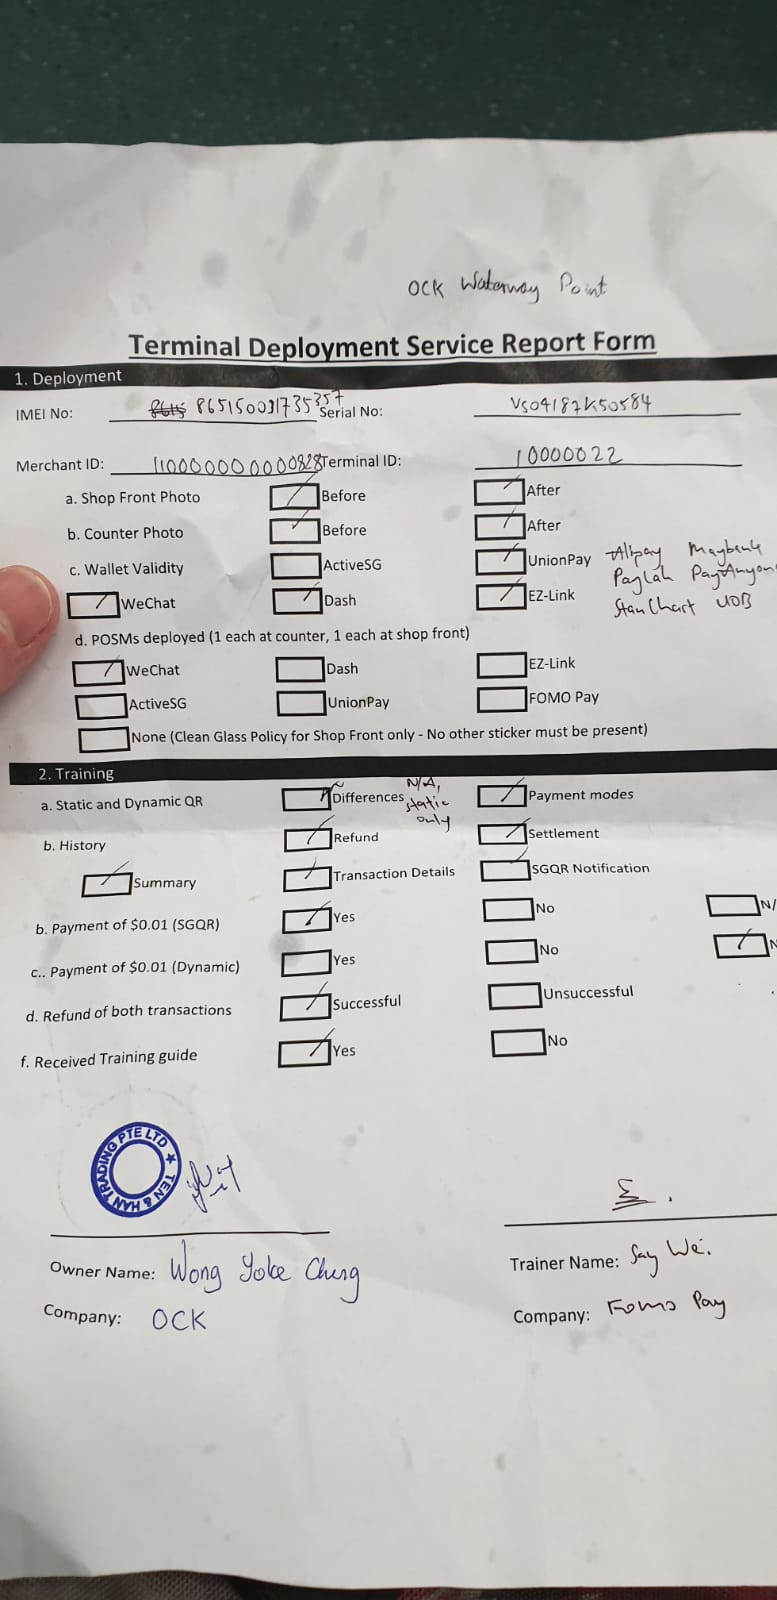 OCK Waterway Point
Terminal Deployment Service Report Form
1. Deployment
IMEI No: 8615 865150031735357 Serial No: VS04187K50584
Merchant ID: 110000000000828 Terminal ID: 10000022
a. Shop Front Photo Before After
b. Counter Photo Before After
c. Wallet Validity ActiveSG UnionPay Alipay Maybank
WeChat Dash EZ-Link Paylah PayAnyone
StanChart UOB
d. POSMs deployed (1 each at counter, 1 each at shop front)
WeChat Dash EZ-Link
ActiveSG UnionPay FOMO Pay
None (Clean Glass Policy for Shop Front only - No other sticker must be present)
2. Training
a. Static and Dynamic QR Differences N/A, static only Payment modes
b. History Refund Settlement
Summary Transaction Details SGQR Notification
b. Payment of $0.01 (SGQR) Yes No N/
c.. Payment of $0.01 (Dynamic) Yes No N
d. Refund of both transactions Successful Unsuccessful
f. Received Training guide Yes No
TEN & HAN TRADING PTE LTD
Owner Name: Wong Yoke Ching Trainer Name: Say Wei.
Company: OCK Company: Fomo Pay